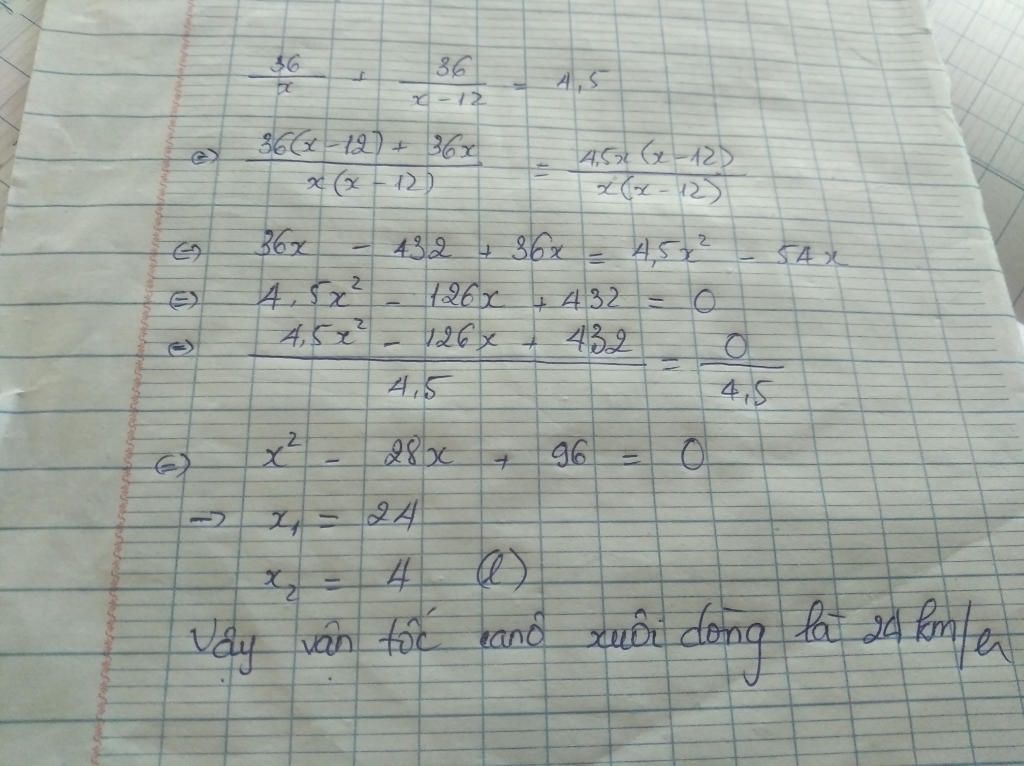 36/x + 36/(x-12) = 4,5
⇔ (36(x-12) + 36x)/(x(x-12)) = (4,5x(x-12))/(x(x-12))
⇔ 36x - 432 + 36x = 4,5x² - 54x
⇔ 4,5x² - 126x + 432 = 0
⇔ (4,5x² - 126x + 432)/4,5 = 0/4,5
⇔ x² - 28x + 96 = 0
→ x₁ = 24
x₂ = 4 (l)
Vậy vận tốc canô xuôi dòng là 24 km/h